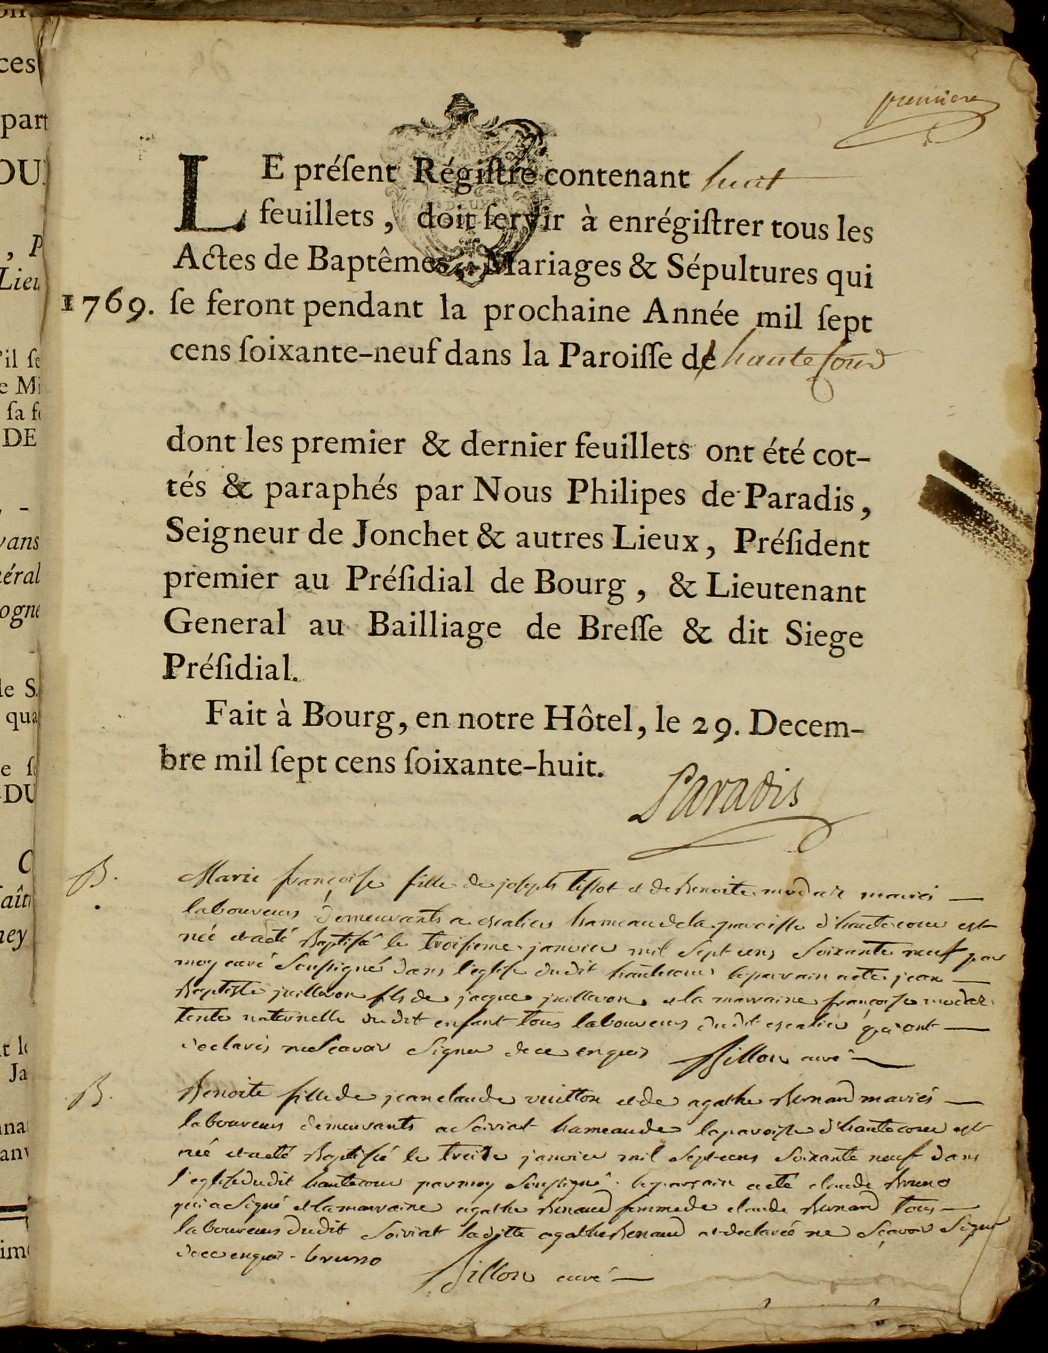 premiere
LE préſent Régiſtre contenant huit
feuillets, doit ſervir à enrégiſtrer tous les
Actes de Baptêmes, Mariages & Sépultures qui
1769. ſe feront pendant la prochaine Année mil ſept
cens ſoixante-neuf dans la Paroiſſe de hautecour
dont les premier & dernier feuillets ont été cot-
tés & paraphés par Nous Philipes de Paradis,
Seigneur de Jonchet & autres Lieux, Préſident
premier au Préſidial de Bourg, & Lieutenant
General au Bailliage de Breſſe & dit Siege
Préſidial.
Fait à Bourg, en notre Hôtel, le 29. Decem-
bre mil ſept cens ſoixante-huit.
Paradis
B. Marie françoise fille de joseph tissot et de Benoite mariés
laboureurs demeurants a hameau de la paroisse d'hautecour est
née et a été Baptisé le troisieme janvier mil sept cens soixante neuf par
moy curé soussigné dans l'eglise dudit hautecour le parrain a été jean
Baptiste juilleron fils de jacque juilleron et la marraine françoise
tente maternelle dudit enfant tous laboureurs dudit qui ont
declarés ne scavoir signer de ce enquis Billon curé
B. Benoite fille de jean claude vuitton et de agathe Renaud mariés
laboureurs demeurants a soiriat hameau de la paroisse d'hautecour est
née et a été Baptisée le treize janvier mil sept cens soixante neuf dans
l'eglise dudit hautecour par moy soussigné le parrain a été claude Bruno
qui a signé et la marraine agathe Renaud femme de claude Renaud tous
laboureurs dudit soiriat laditte agathe Renaud a declaréé ne sçavoir signer
de ce enquis. bruno Billon curé